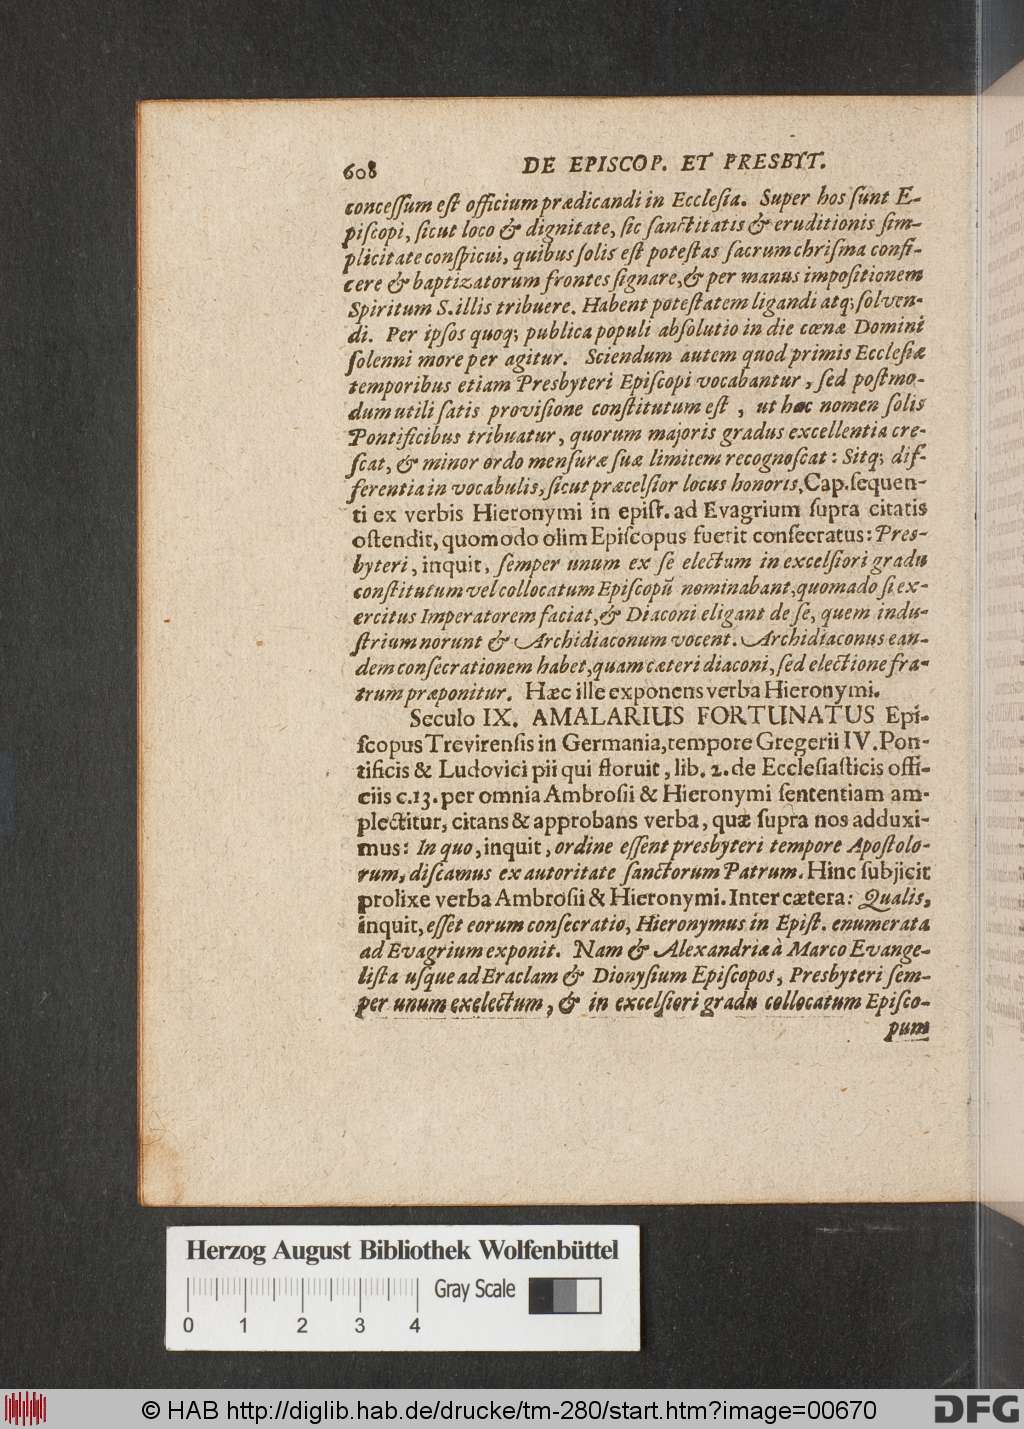 608 DE EPISCOP. ET PRESBYT.
conceſſum eſt officium prædicandi in Eccleſia. Super hos ſunt E-
piſcopi, ſicut loco & dignitate, ſic ſanctitatis & eruditionis ſim-
plicitate conſpicui, quibus ſolis eſt poteſtas ſacrum chriſma confi-
cere & baptizatorum frontes ſignare, & per manus impoſitionem
Spiritum S. illis tribuere. Habent poteſtatem ligandi atq; ſolven-
di. Per ipſos quoq; publica populi abſolutio in die cœnæ Domini
ſolenni more per agitur. Sciendum autem quod primis Eccleſiæ
temporibus etiam Presbyteri Epiſcopi vocabantur, ſed poſtmo-
dum utili ſatis proviſione conſtitutum eſt, ut hoc nomen ſolis
Pontificibus tribuatur, quorum majoris gradus excellentia cre-
ſcat, & minor ordo menſuræ ſuæ limitem recognoſcat: Sitq; dif-
ferentia in vocabulis, ſicut præcelſior locus honoris, Cap. ſequen-
ti ex verbis Hieronymi in epiſt. ad Evagrium ſupra citatis
oſtendit, quomodo olim Epiſcopus fuerit conſecratus: Pres-
byteri, inquit, ſemper unum ex ſe electum in excelſiori gradu
conſtitutum vel collocatum Epiſcopũ nominabant, quomado ſi ex-
ercitus Imperatorem faciat, & Diaconi eligant de ſe, quem indu-
ſtrium norunt & Archidiaconum vocent. Archidiaconus ean-
dem conſecrationem habet, quam cæteri diaconi, ſed electione fra-
trum præponitur. Hæc ille exponens verba Hieronymi.
Seculo IX. AMALARIUS FORTUNATUS Epi-
ſcopus Trevirenſis in Germania, tempore Gregerii IV. Pon-
tificis & Ludovici pii qui floruit, lib. 2. de Eccleſiaſticis offi-
ciis c. 13. per omnia Ambroſii & Hieronymi ſententiam am-
plectitur, citans & approbans verba, quæ ſupra nos adduxi-
mus: In quo, inquit, ordine eſſent presbyteri tempore Apoſtolo-
rum, diſcamus ex autoritate ſanctorum Patrum. Hinc ſubjicit
prolixe verba Ambroſii & Hieronymi. Inter cætera: Qualis,
inquit, eſſet eorum conſecratio, Hieronymus in Epiſt. enumerata
ad Evagrium exponit. Nam & Alexandriæ à Marco Evange-
liſta uſque ad Eraclam & Dionyſium Epiſcopos, Presbyteri ſem-
per unum exelectum, & in excelſiori gradu collocatum Epiſco-
pum
Herzog August Bibliothek Wolfenbüttel
Gray Scale
0 1 2 3 4
© HAB http://diglib.hab.de/drucke/tm-280/start.htm?image=00670
DFG